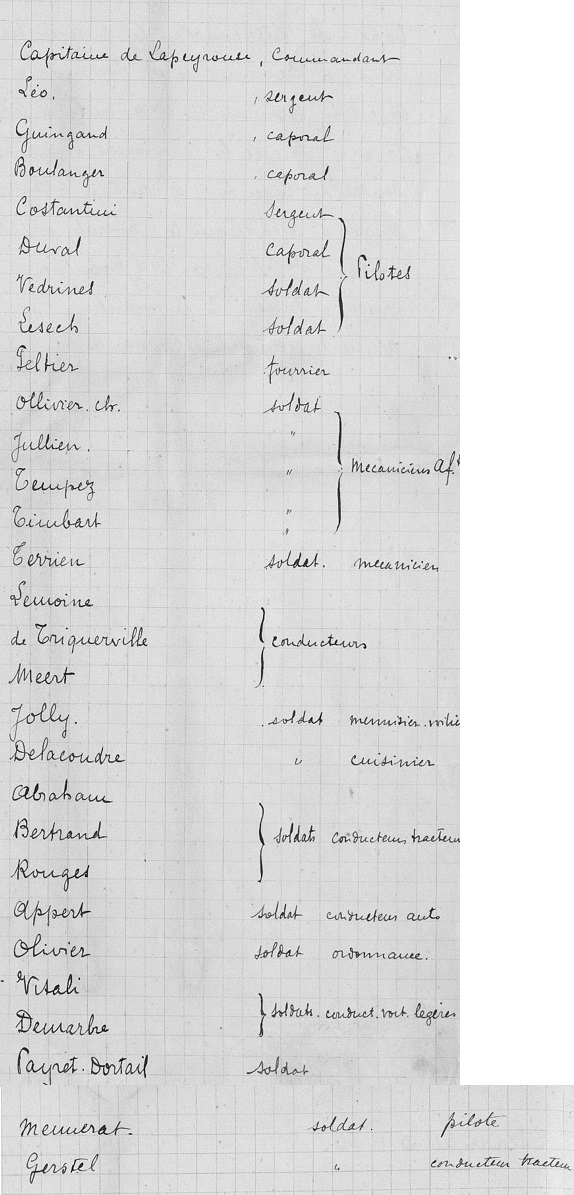 Capitaine de Lapeyrouse, Commandant
Léo. , sergent
Guingand , caporal
Boulanger , caporal
Costantini Sergent
Duval Caporal
Pilotes
Vedrines soldat
Lesech soldat
Peltier fourrier
Ollivier. ch. soldat
Jullien. "
mecaniciens af.
Tempez "
Timbart "
Terrien soldat. mecanicien
Lemoine
de Triquerville conducteurs
Meert
Jolly. soldat menuisier.
Delacoudre " cuisinier
Abraham
Bertrand soldats conducteurs tracteur
Rouges
Appert soldat conducteur auto
Olivier soldat ordonnance.
Vitali
soldats. conduct. voit. legères
Demarbre
Payret. Dortail soldat
Mennerat. soldat. pilote
Gerstel " conducteur tracteur